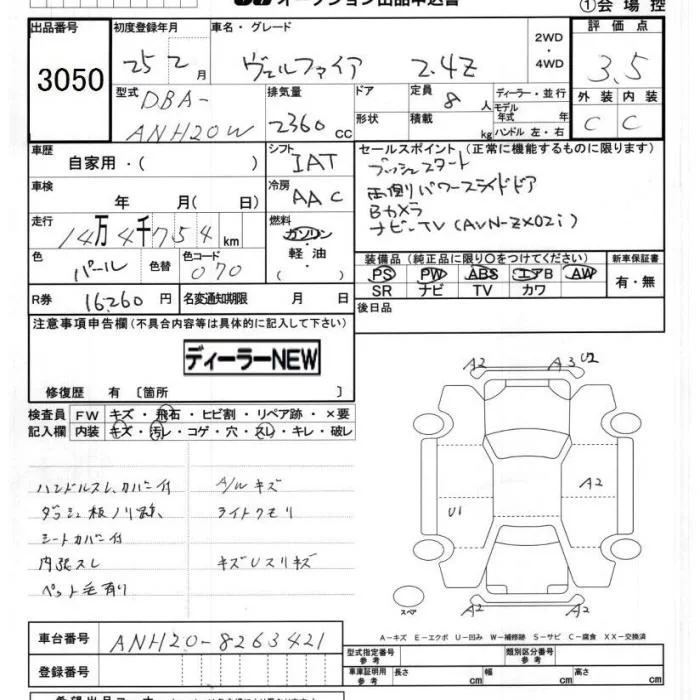 オークション出品申込書
①会場控
出品番号
3050
初度登録年月
25 2 月
車名・グレード
ヴェルファイア 2.4Z
2WD
・
4WD
評価点
3.5
型式
DBA-
ANH20W
排気量
2360 cc
ドア
形状
定員
8 人
積載
kg
ディーラー・並行
モデル
年式 年
ハンドル 左・右
外装 内装
C C
車歴
自家用・( )
シフト
IAT
セールスポイント (正常に機能するものに限ります)
プッシュスタート
両側パワースライドドア
Bカメラ
ナビ-TV (AVN-ZX02i)
車検
年 月( 日)
冷房
AAC
走行
14万4千754km
燃料
ガソリン
・
軽・油
( )
色
パール
色替
色コード
070
装備品 (純正品に限り○をつけてください)
PS PW ABS エアB AW
SR ナビ TV カワ
新車保証書
有・無
R券 16,260 円
名変通知期限 月 日
後日品
注意事項申告欄(不具合内容等は具体的に記入して下さい)
ディーラーNEW
修復歴 有 〔箇所 〕
検査員
記入欄
FW キズ・飛石・ヒビ割・リペア跡・×要
内装 キズ・汚レ・コゲ・穴・スレ・キレ・破レ
ハンドルスレ、カバー付
A/Wキズ
ダッシュ板ノリ跡、
ライトクモリ
シートカバー付
内張スレ
キズUスリキズ
ペット毛有り
A2 A3 U2
A2
U1
A2 A2
スペア
A-キズ E-エクボ U-凹み W-補修跡 S-サビ C-腐食 XX-交換済
車台番号 ANH20-8263421
登録番号
型式指定番号
参考
類別区分番号
参考
車庫証明用
参考
長さ cm 幅 cm 高さ cm